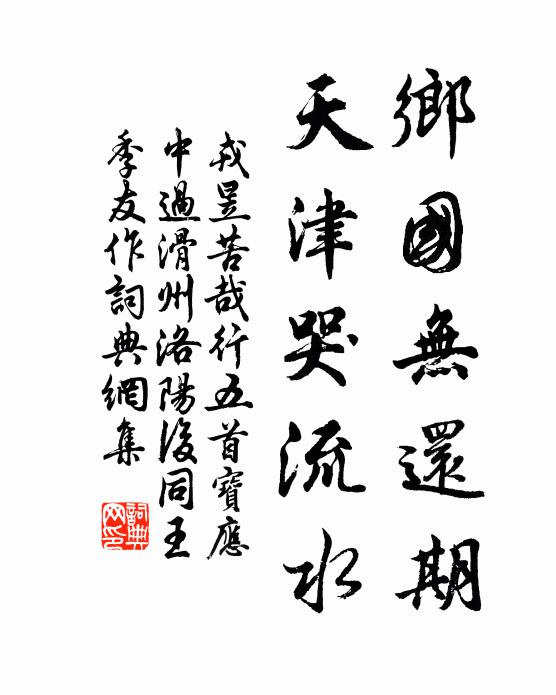 鄉國無還期
天津哭流水
戎昱苦哉行五首寶應
中過滑州洛陽後同王
季友作詞典網集
詞典
网印